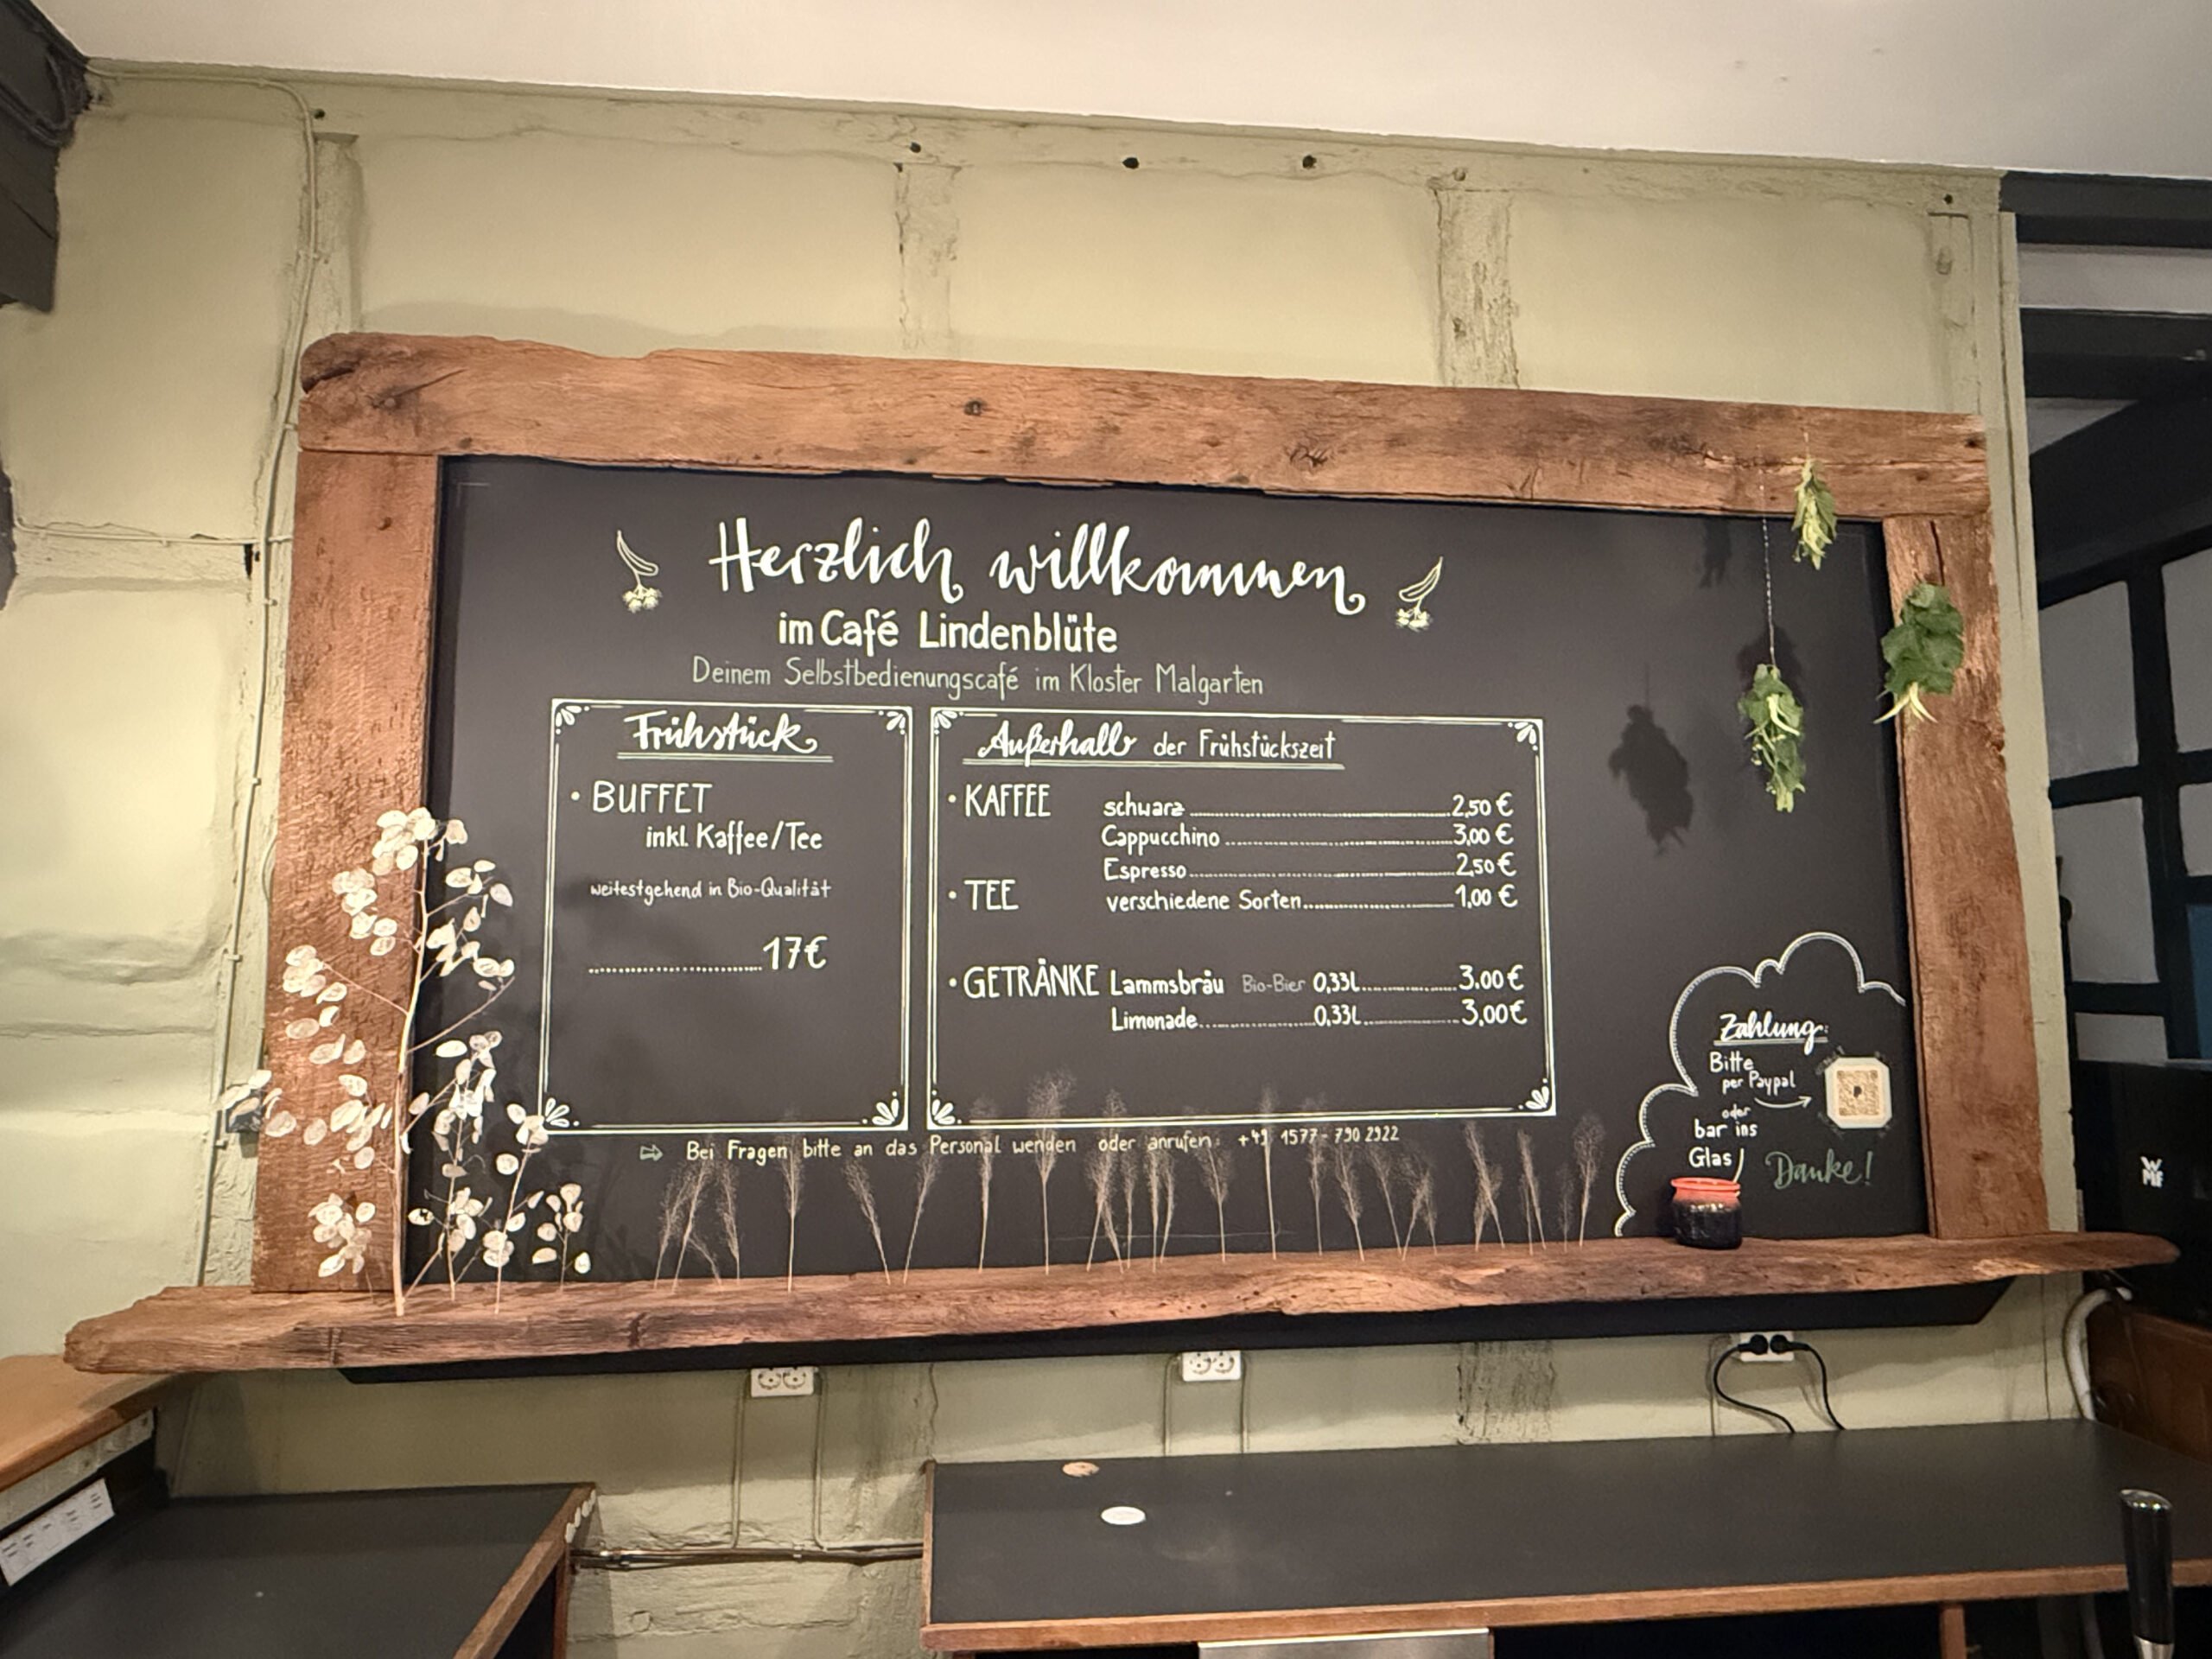 Herzlich willkommen
im Café Lindenblüte
Deinem Selbstbedienungscafé im Kloster Malgarten
Frühstück
• BUFFET
inkl. Kaffee/Tee
weitestgehend in Bio-Qualität
....................17€
Außerhalb der Frühstückszeit
• KAFFEE schwarz....................2,50 €
Cappucchino....................3,00 €
Espresso....................2,50 €
• TEE verschiedene Sorten....................1,00 €
• GETRÄNKE Lammsbräu Bio-Bier 0,33l....................3.00 €
Limonade....................0,33l....................3,00 €
⇨ Bei Fragen bitte an das Personal wenden oder anrufen: +49 1577-790 2922
Zahlung:
Bitte
per Paypal
oder
bar ins
Glas
Danke!
WMF